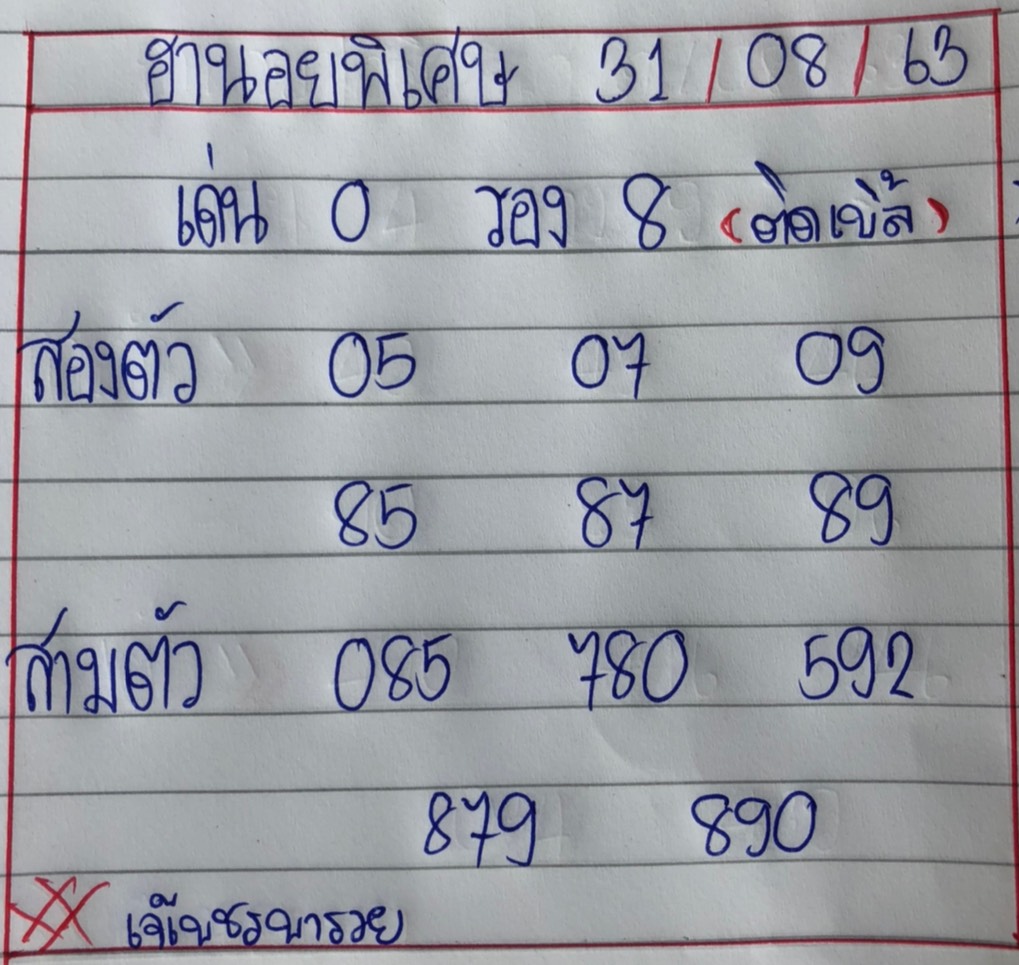 ฮานอยพิเศษ 31/08/63
เด่น 0 รอง 8 (ติดเบิ้ล)
สองตัว 05 07 09
85 87 89
สามตัว 085 780 592
879 890
เจ๊เพชรพารวย